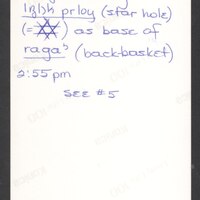 prloy (star hole)
(= ) as base of
ragas (back-basket)
2:55 pm
SEE #5